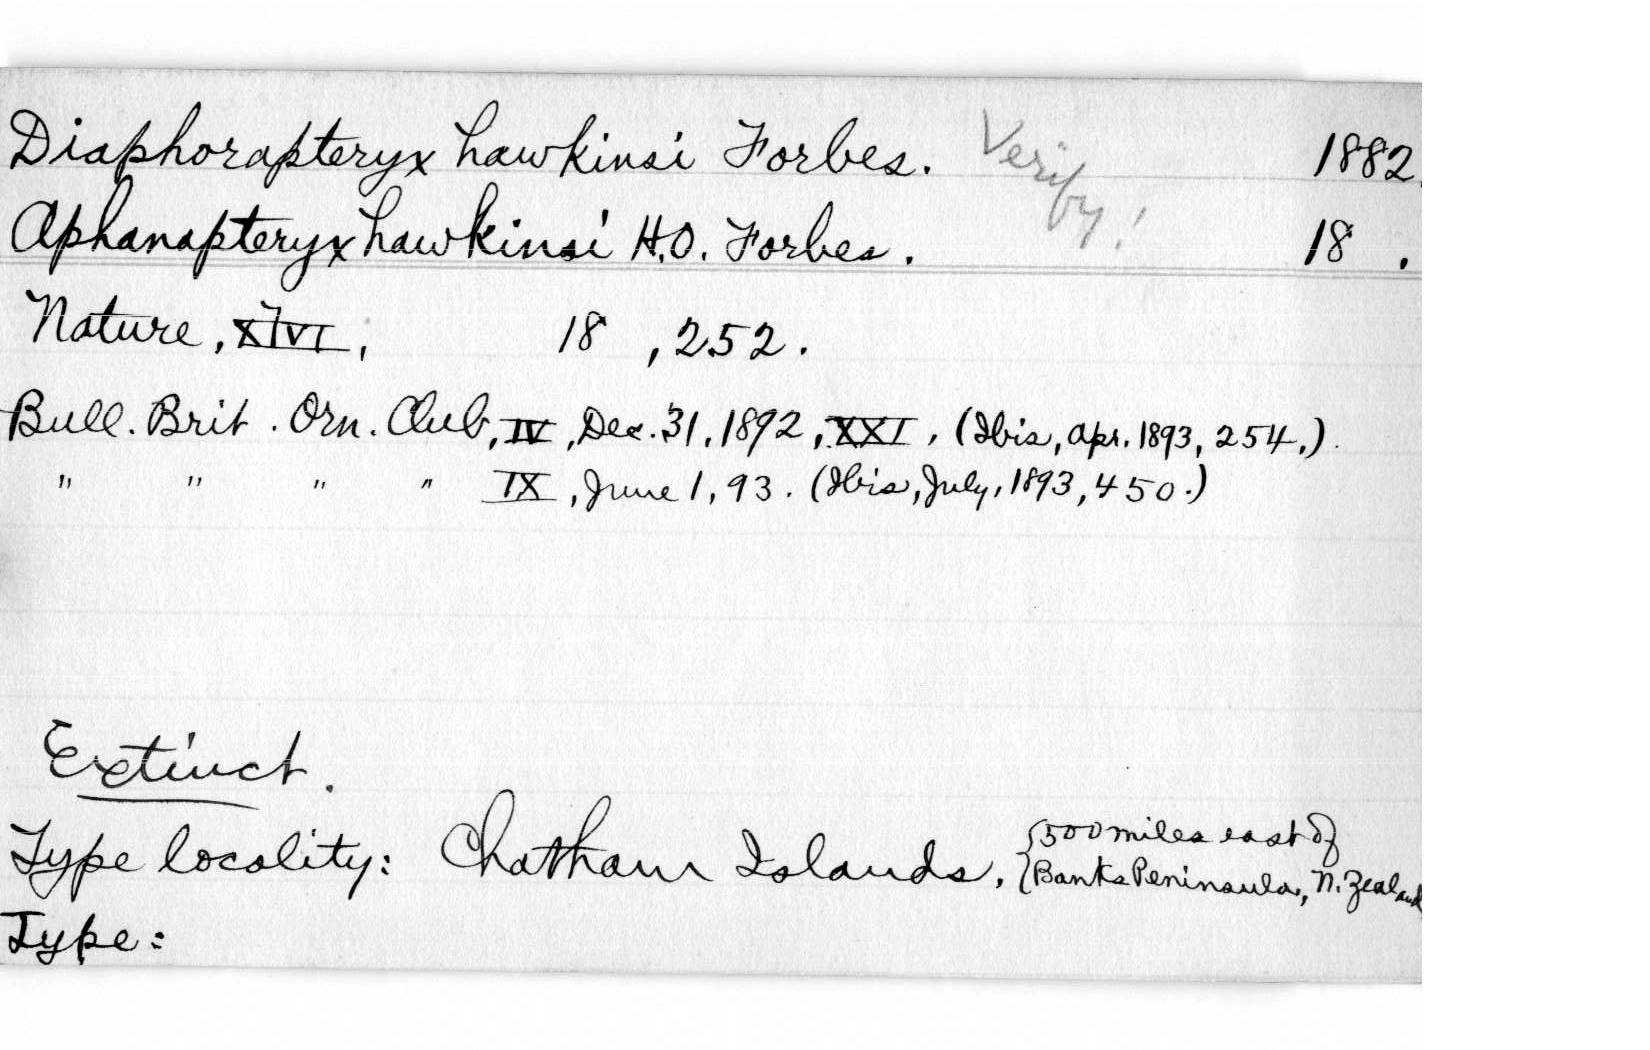 Diaphorapteryx hawkinsi Forbes. Verify! 1882.
Aphanapteryx hawkinsi H.O. Forbes. 18 .
Nature, XLVI, 18 , 252.
Bull. Brit. Orn. Club, IV, Dec. 31, 1892, XXI. (Ibis, Apr. 1893, 254.)
" " " " IX, June 1, 93. (Ibis, July, 1893, 450.)
Extinct.
Type locality: Chatham Islands, {500 miles east of
{Banks Peninsula, N. Zealand
Type: